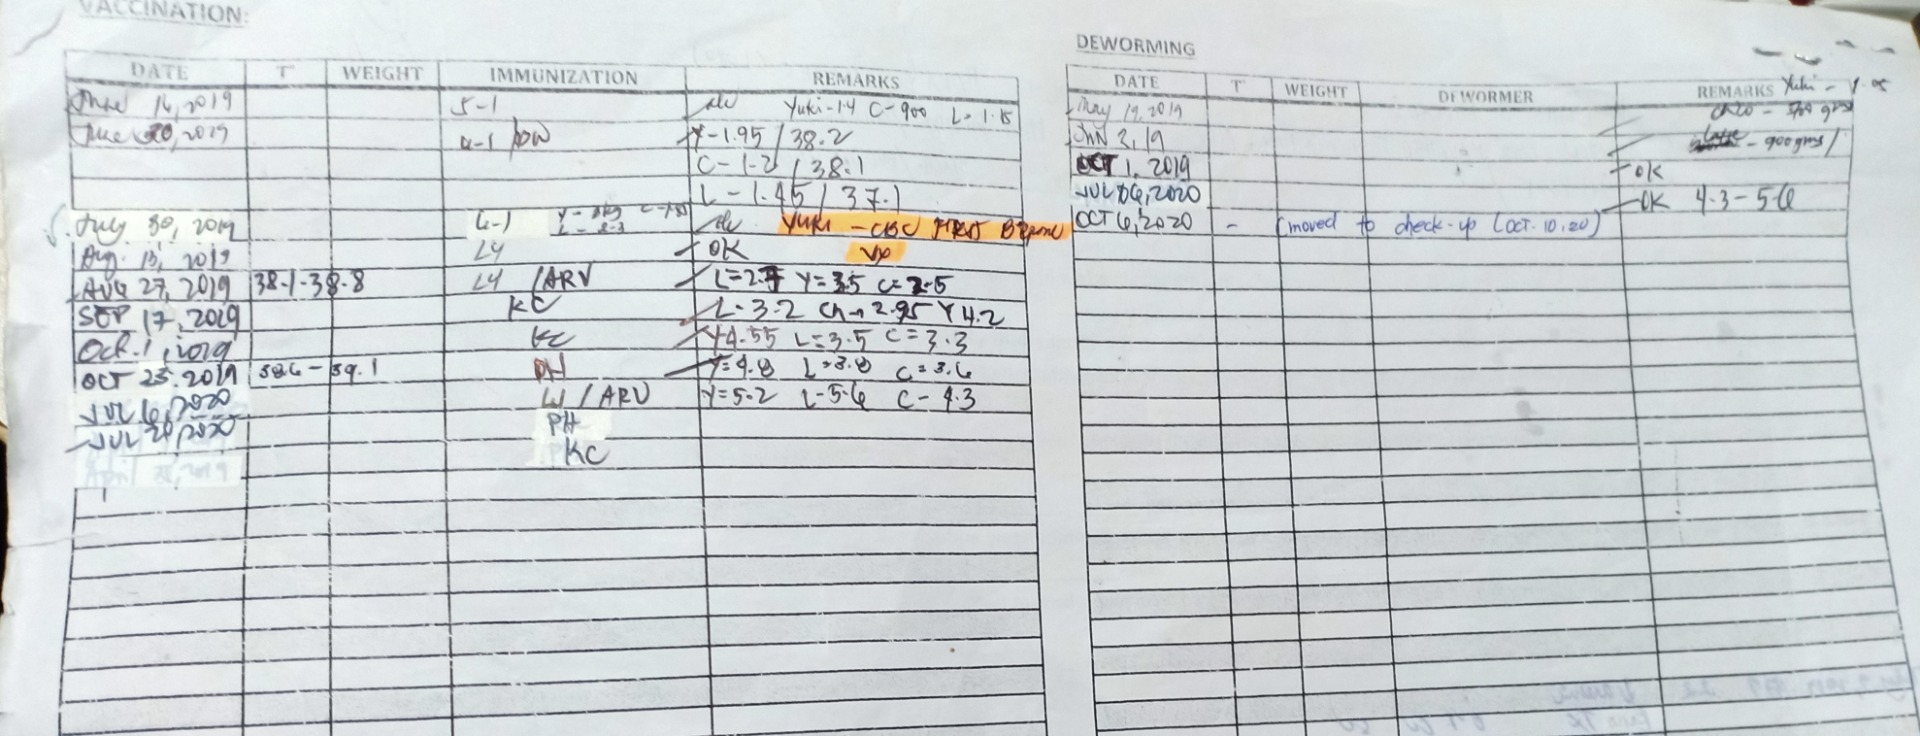 VACCINATION:
DATE T WEIGHT IMMUNIZATION REMARKS
June 16, 2019 5-1 Yuki-1.4 C-900 L- 1.15
June 30, 2019 6-1 /DW Y-1.95 / 38.2
C-1-2 / 38.1
L-1.45 / 37.1
July 30, 2019 6-1 Yuki - CBC
Aug. 13, 2019 L4 OK
AUG 27, 2019 38.1-38.8 L4 /ARV L=2.7 Y=3.5 C=2.5
SEP 17, 2019 KC L-3.2 2.95 Y 4.2
Oct. 1, 2019 KC Y4.55 L=3.5 C=3.3
OCT 25. 2019 38.6-39.1 Y=4.8 L=3.8 C=3.6
JUL 6, 2020 / ARV Y=5.2 L-5.6 C- 4.3
JUL 2020 PH
KC
DEWORMING
DATE T WEIGHT DEWORMER REMARKS Yuki -
May 19, 2019
JUN 2, 19 - 900 gms/
OCT 1, 2019 - OK
JUL 06, 2020 - OK 4.3-5.6
OCT 6, 2020 - (moved to check-up (OCT. 10, 20)